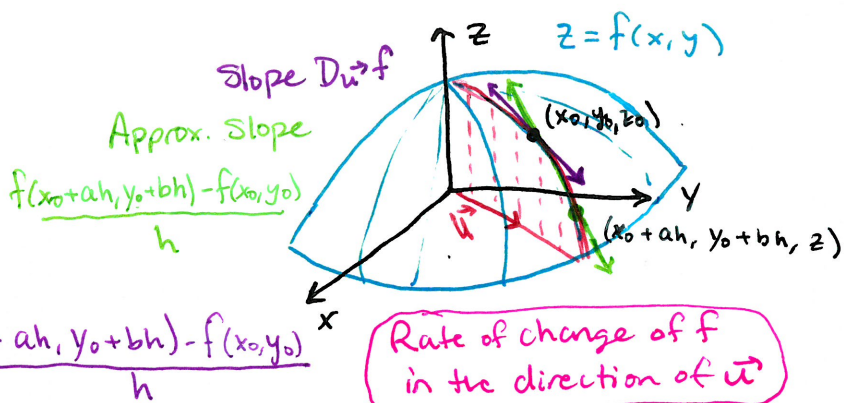 Z
Z = f(x, y)
Slope D_u⃗ f
(x₀, y₀, z₀)
Approx. Slope
f(x₀+ah, y₀+bh) - f(x₀, y₀)
h
y
u⃗
(x₀ + ah, y₀ + bh, z)
x
ah, y₀+bh) - f(x₀, y₀)
h
Rate of change of f
in the direction of u⃗